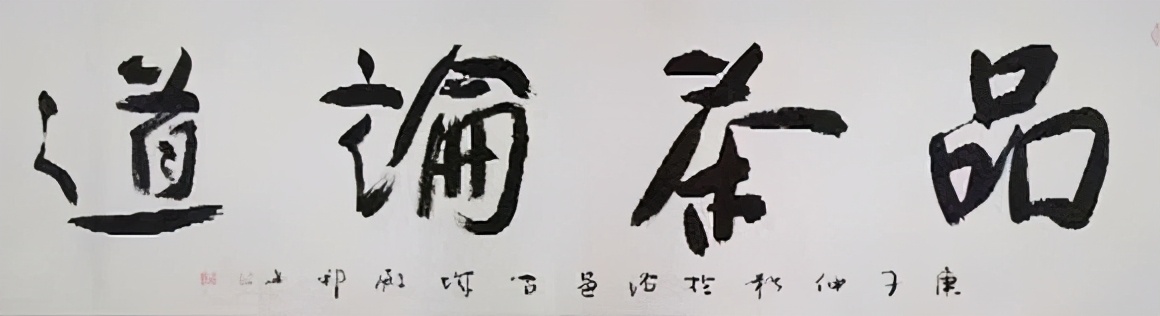 品茶論道
庚子仲秋於洛邑